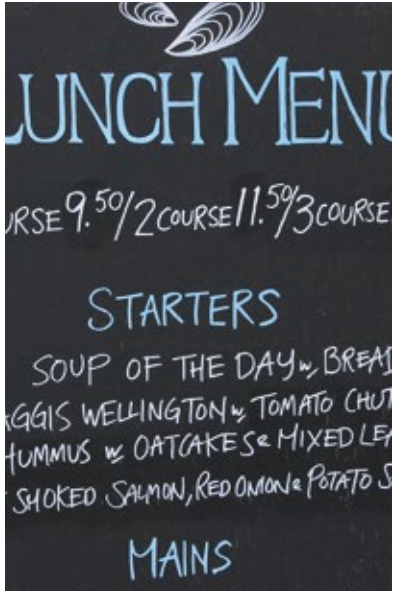 LUNCH MENU
URSE 9.50/2 COURSE 11.50/3 COURSE
STARTERS
SOUP OF THE DAY w/ BREAD
AGGIS WELLINGTON w/ TOMATO CHUT
HUMMUS w/ OATCAKES & MIXED LEA
SMOKED SALMON, RED ONION & POTATO S
MAINS